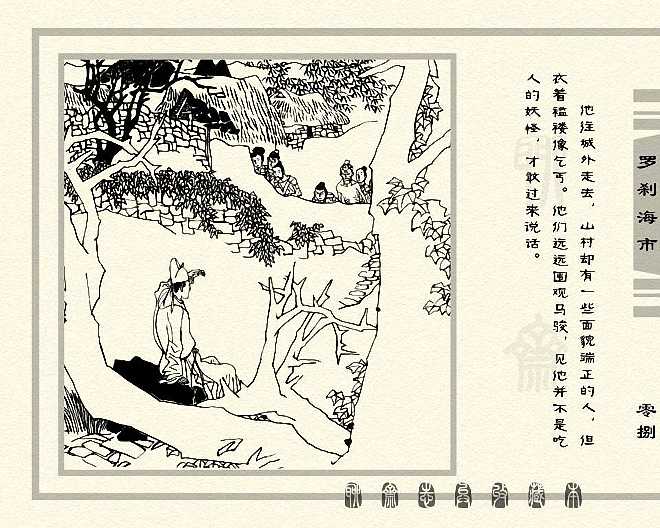 他往城外走去，山村却有一些面貌端正的人，但
衣着褴褛像乞丐。他们远远围观马骏，见他并不是吃
人的妖怪，才敢过来说话。
罗刹海市
零捌
聊斋志异收藏本